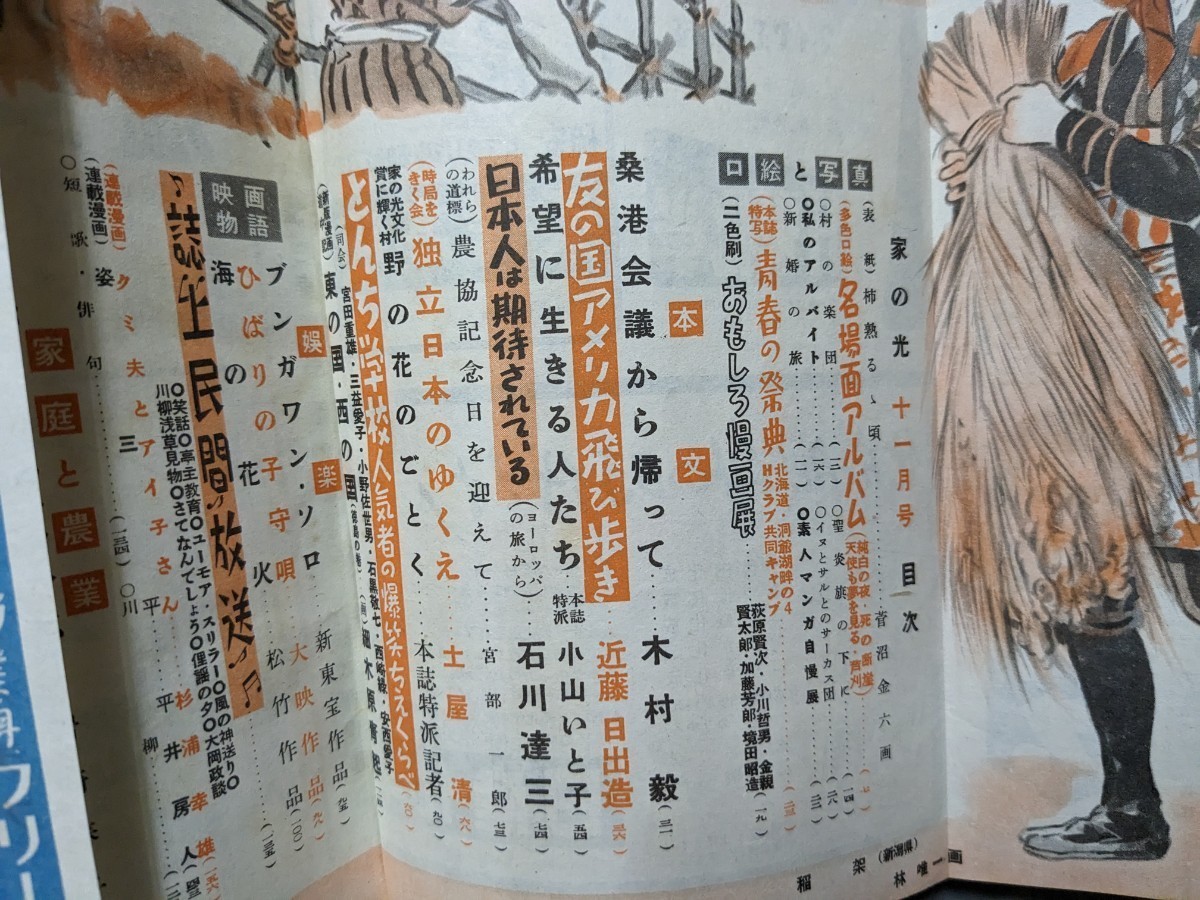 家の光 十一月号 目次
(表紙)柿熟るゝ頃……菅沼金六画
口絵と写真
(多色口絵)名場面アルバム(純白の夜・死の断崖 天使も夢を見る・芦刈)
○村の楽団
○聖炎旗の下に
○私のアルバイト
○イヌとサルとのサーカス団
○新婚の旅
○素人マンガ自慢展
(本誌特写)青春の祭典 北海道・洞爺湖畔の4Hクラブ共同キャンプ
(二色刷)おもしろ漫画展 荻原賢次・小川哲男・金親賢太郎・加藤芳郎・境田昭造
本文
桑港会議から帰って……木村毅(三一)
友の国アメリカ飛び歩き 近藤日出造
希望に生きる人たち 本誌特派 小山いと子(五四)
日本人は期待されている(ヨーロッパの旅から) 石川達三(七四)
(われらの道標)農協記念日を迎えて……宮部一郎(七三)
(時局をきく会)独立日本のゆくえ……土屋清(六八)
家の光文化賞に輝く村 野の花のごとく……本誌特派記者(九〇)
とんち学校人気者の爆笑ちえくらべ
(司会)宮田重雄・三益愛子・小野佐世男・石黒敬七・西崎緑・安西愛子
東の国・西の国
(画)細木原青起
娯楽
映画物語
ブンガワン・ソロ……新東宝作品
ひばりの子守唄……大映作品
海の花火……松竹作品(一〇〇)
♪誌上民間放送♪
○笑話○亭主教育○ユーモア・スリラー○風の神送り○
川柳浅草見物○さてなんでしょう○俚謡の夕○大岡政談
(連載漫画)クミ夫とアイ子さん……杉浦幸雄
(連載漫画)姿三平……平井房人
○短歌・俳句……(一三四)○川柳
家庭と農業
稲架(新潟県) 林唯一画